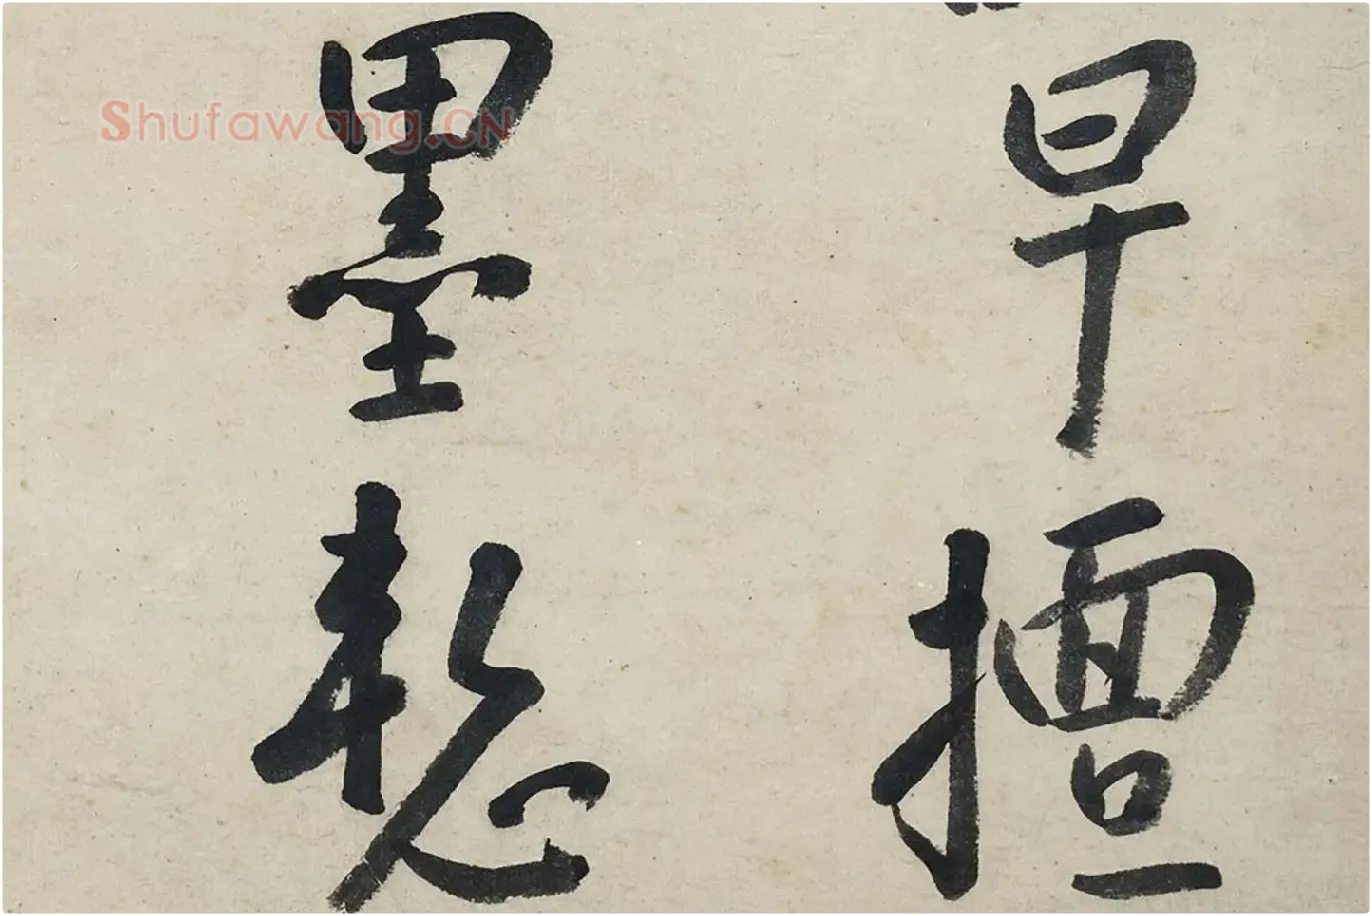 早擅
墨
Shufawang.CN